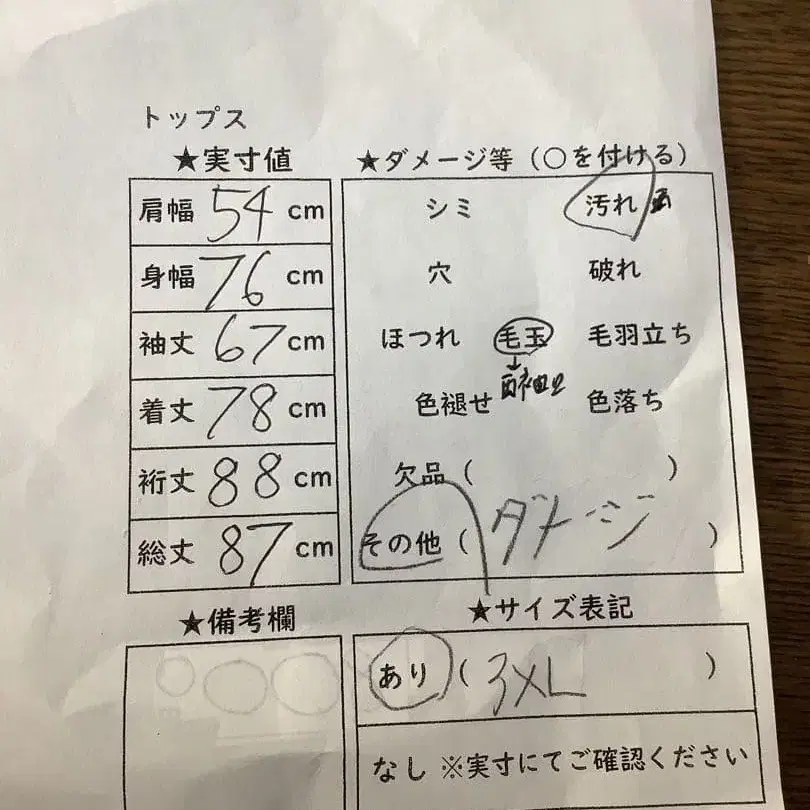 トップス
★実寸値
肩幅 54 cm
身幅 76 cm
袖丈 67 cm
着丈 78 cm
裄丈 88 cm
総丈 87 cm
★ダメージ等（○を付ける）
シミ 汚れ
穴 破れ
ほつれ 毛玉 毛羽立ち
色褪せ 色落ち
欠品（ ）
その他（ダメージ）
★備考欄
★サイズ表記
あり（3XL ）
なし ※実寸にてご確認ください